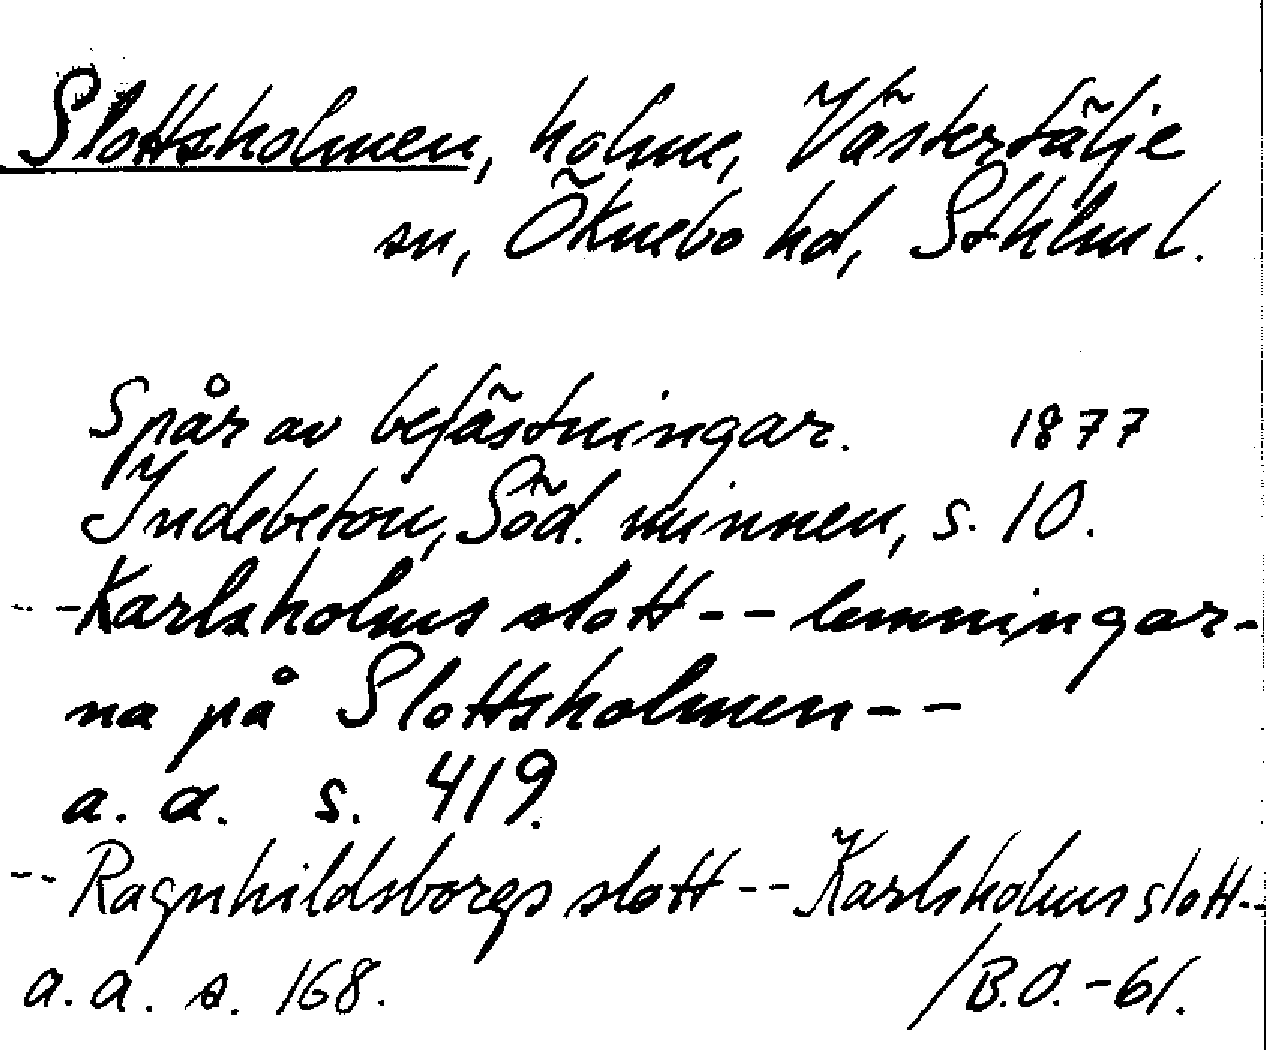 Slottsholmen, holme, Västertälje
sn, Öknebo hd, Sthlms l.
Spår av befästningar. 1877
Indebetou, Söd. minnen, s. 10.
-- Karlsholms slott -- lemningar-
na på Slottsholmen --
a. a. s. 419.
-- Ragnhildsborgs slott -- Karlsholms slott --
a. a. s. 168. /B.O. -61.